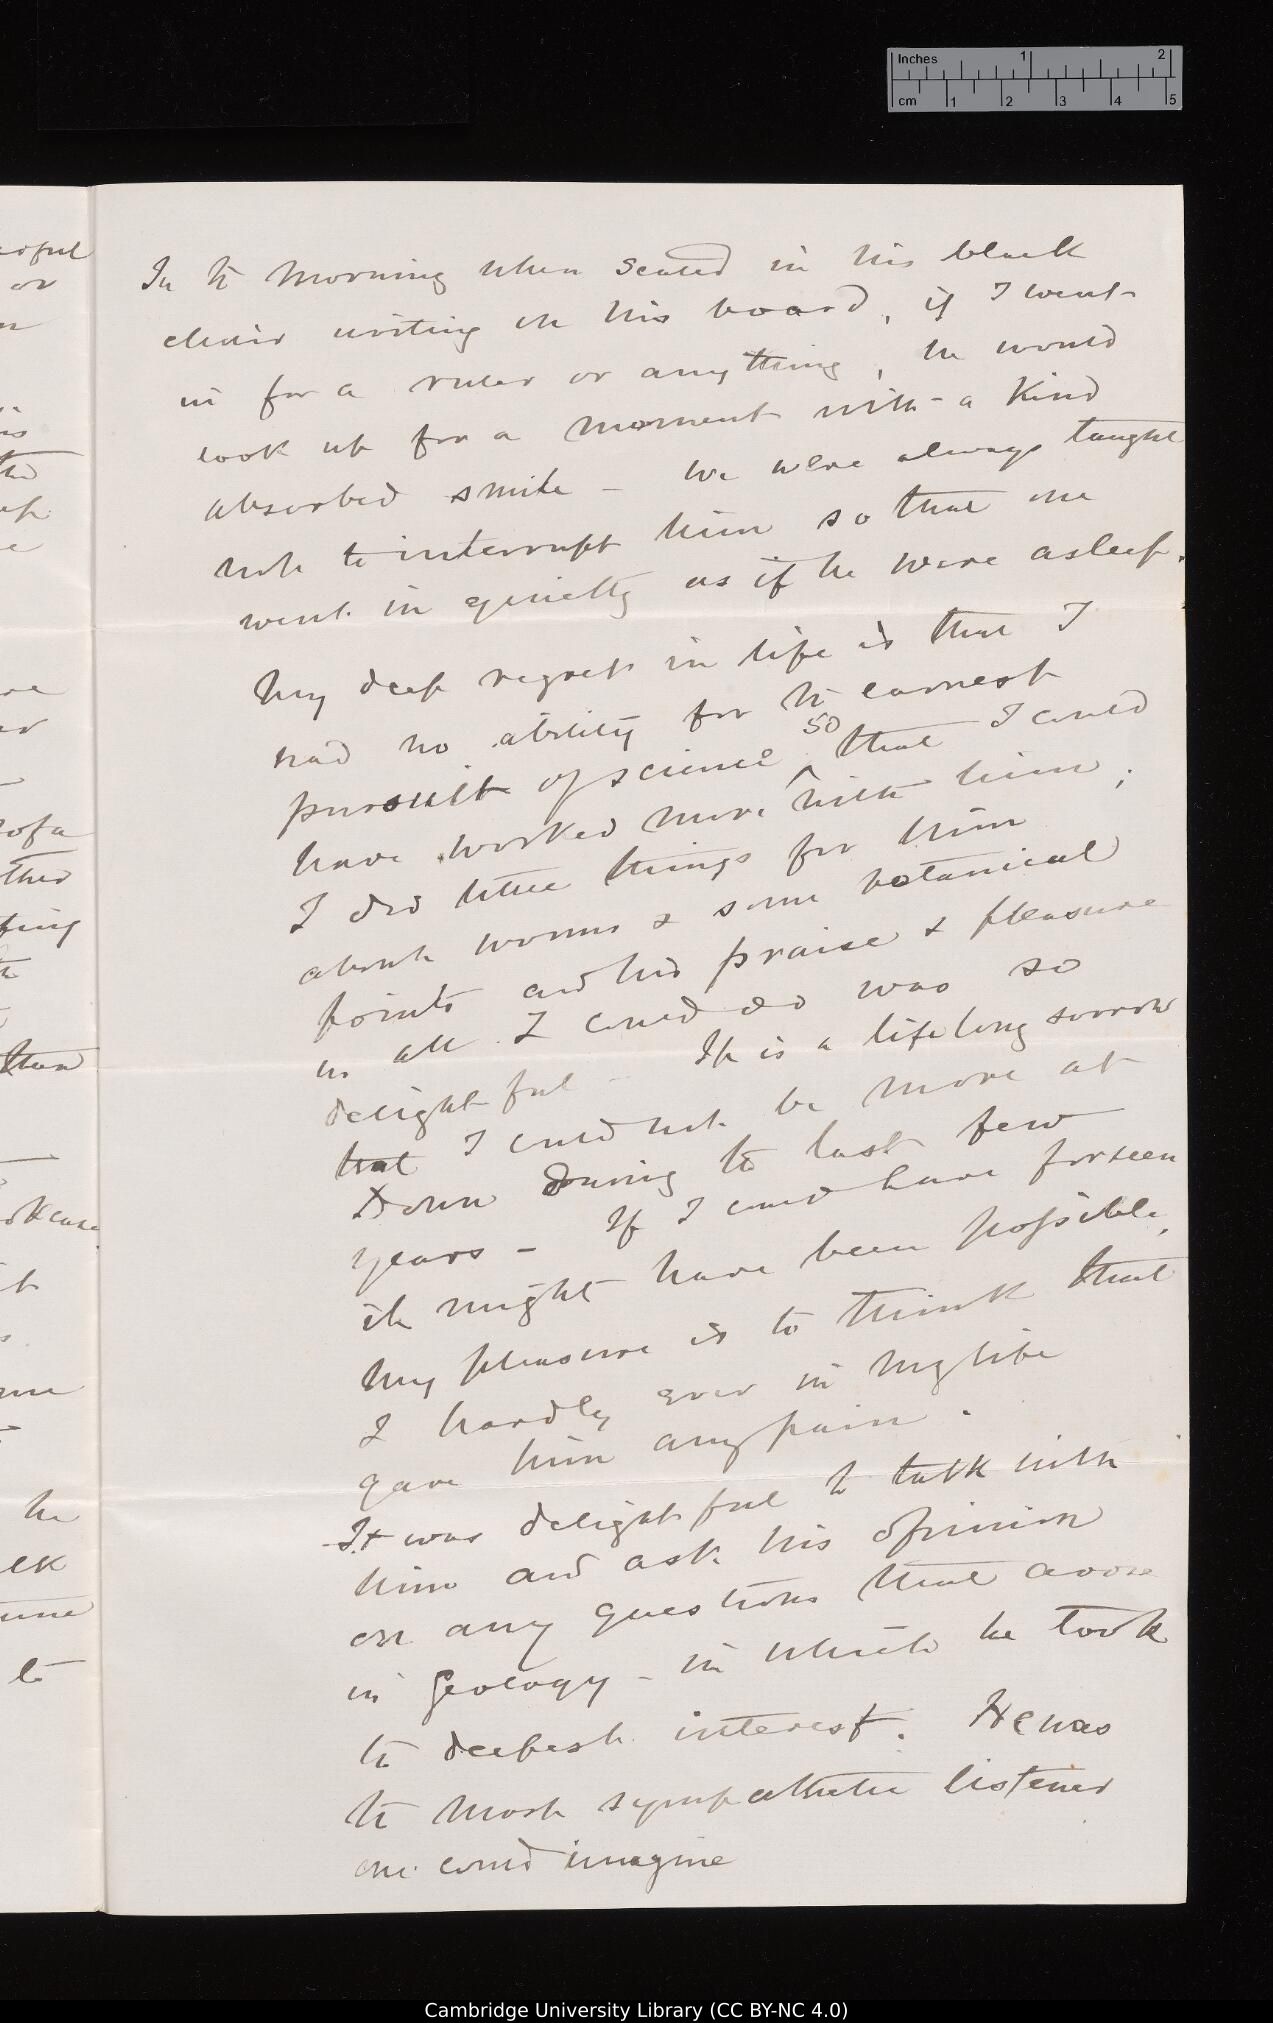 Inches 1 2
cm 1 2 3 4 5
In the morning when seated in his black
chair writing on his board, if I went
in for a ruler or anything, he would
look up for a moment with a kind
absorbed smile – We were always taught
not to interrupt him so that one
went in quietly as if he were asleep.
My deep regret in life is that I
had no ability for the earnest
pursuit of science so that I could
have worked more with him;
I did little things for him
about worms & some botanical
points and his praise & pleasure
in all I could do was so
delightful – It is a lifelong sorrow
that I could not be more at
Down during the last few
years – If I could have forseen
it might have been possible,
My pleasure is to think that
I hardly ever in my life
gave him any pain.
It was delightful to talk with
him and ask his opinion
on any questions that arose
in Geology – in which he took
the deepest interest. He was
the most sympathetic listener
one could imagine
or
sofa
than
he
to
Cambridge University Library (CC BY-NC 4.0)